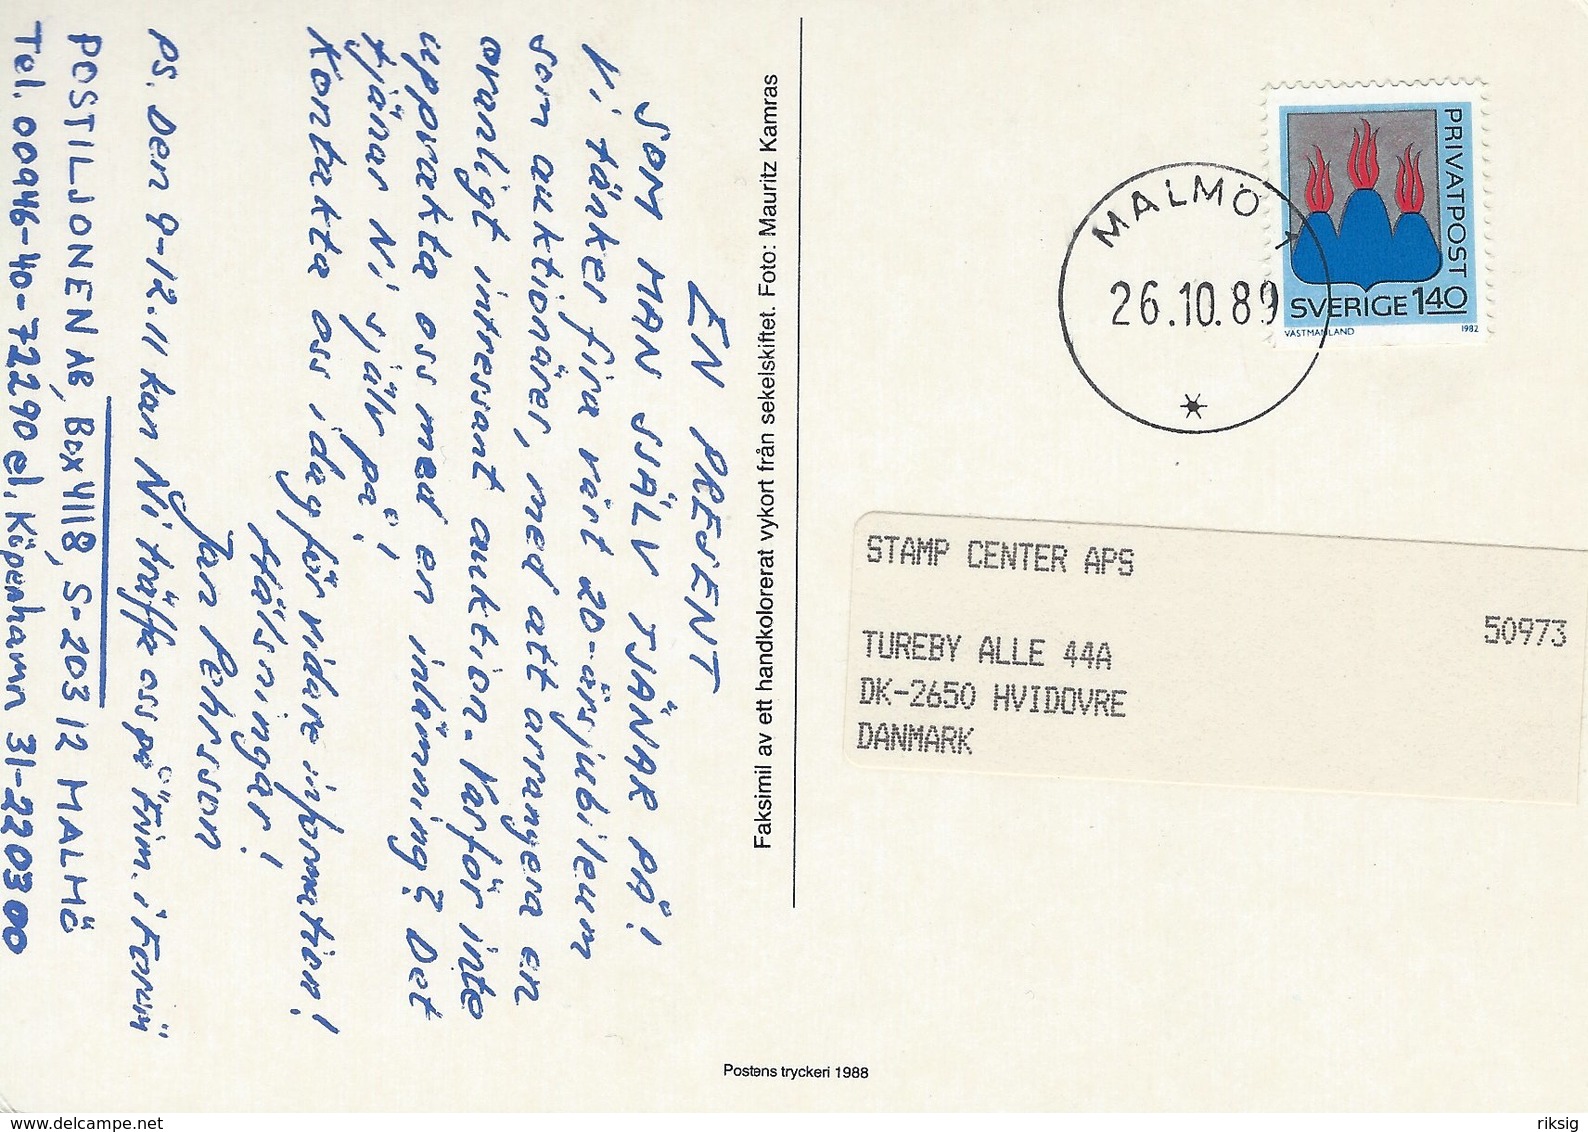 EN PRESENT
SOM MAN SJÄLV TJÄNAR PÅ!
Vi tänker fira vårt 20-årsjubileum
som auktionärer, med att arrangera en
oranligt intressant auktion. Varför inte
uppvakta oss med en inlämning? Det
tjänar Ni själv på!
Kontakta oss idag för vidare information!
Hälsningar!
Jan Pehrsson
PS. Den 9-12.11 kan Ni träffa oss på Frim. i Forum
POSTILJONEN AB, Box 4118, S-203 12 MALMÖ
Tel. 00946-40-72290 el. Köpenhamn 31-220300
Faksimil av ett handkolorerat vykort från sekelskiftet. Foto: Mauritz Kamras
Postens tryckeri 1988
PRIVATPOST
SVERIGE 1.40
VÄSTMANLAND 1982
MALMÖ 1
26.10.89
STAMP CENTER APS
50973
TUREBY ALLE 44A
DK-2650 HVIDOVRE
DANMARK
delcampe.net
riksig